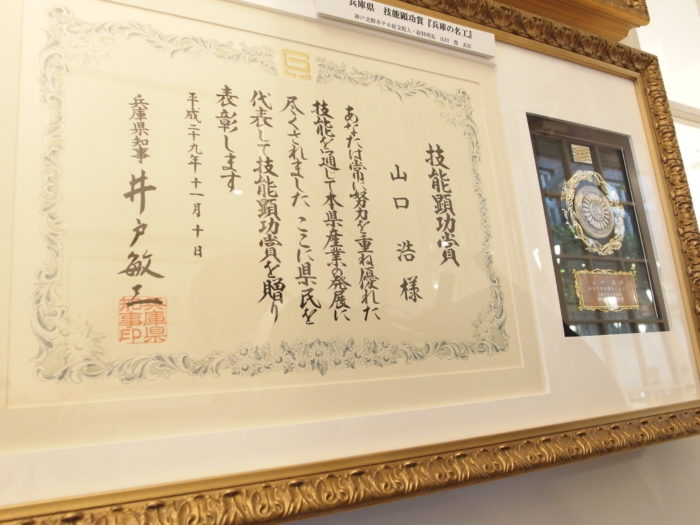 兵庫県　技能顕功賞『兵庫の名工』
神戸北野ホテル総支配人・総料理長　山口　浩　氏
技能顕功賞
山口　浩　様
あなたは常に努力を重ね優れた
技能を通じて本県産業の発展に
尽くされました ここに県民を
代表して技能顕功賞を贈り
表彰します
平成二十九年十一月十日
兵庫県知事　井戸敏三
兵庫県
知事印